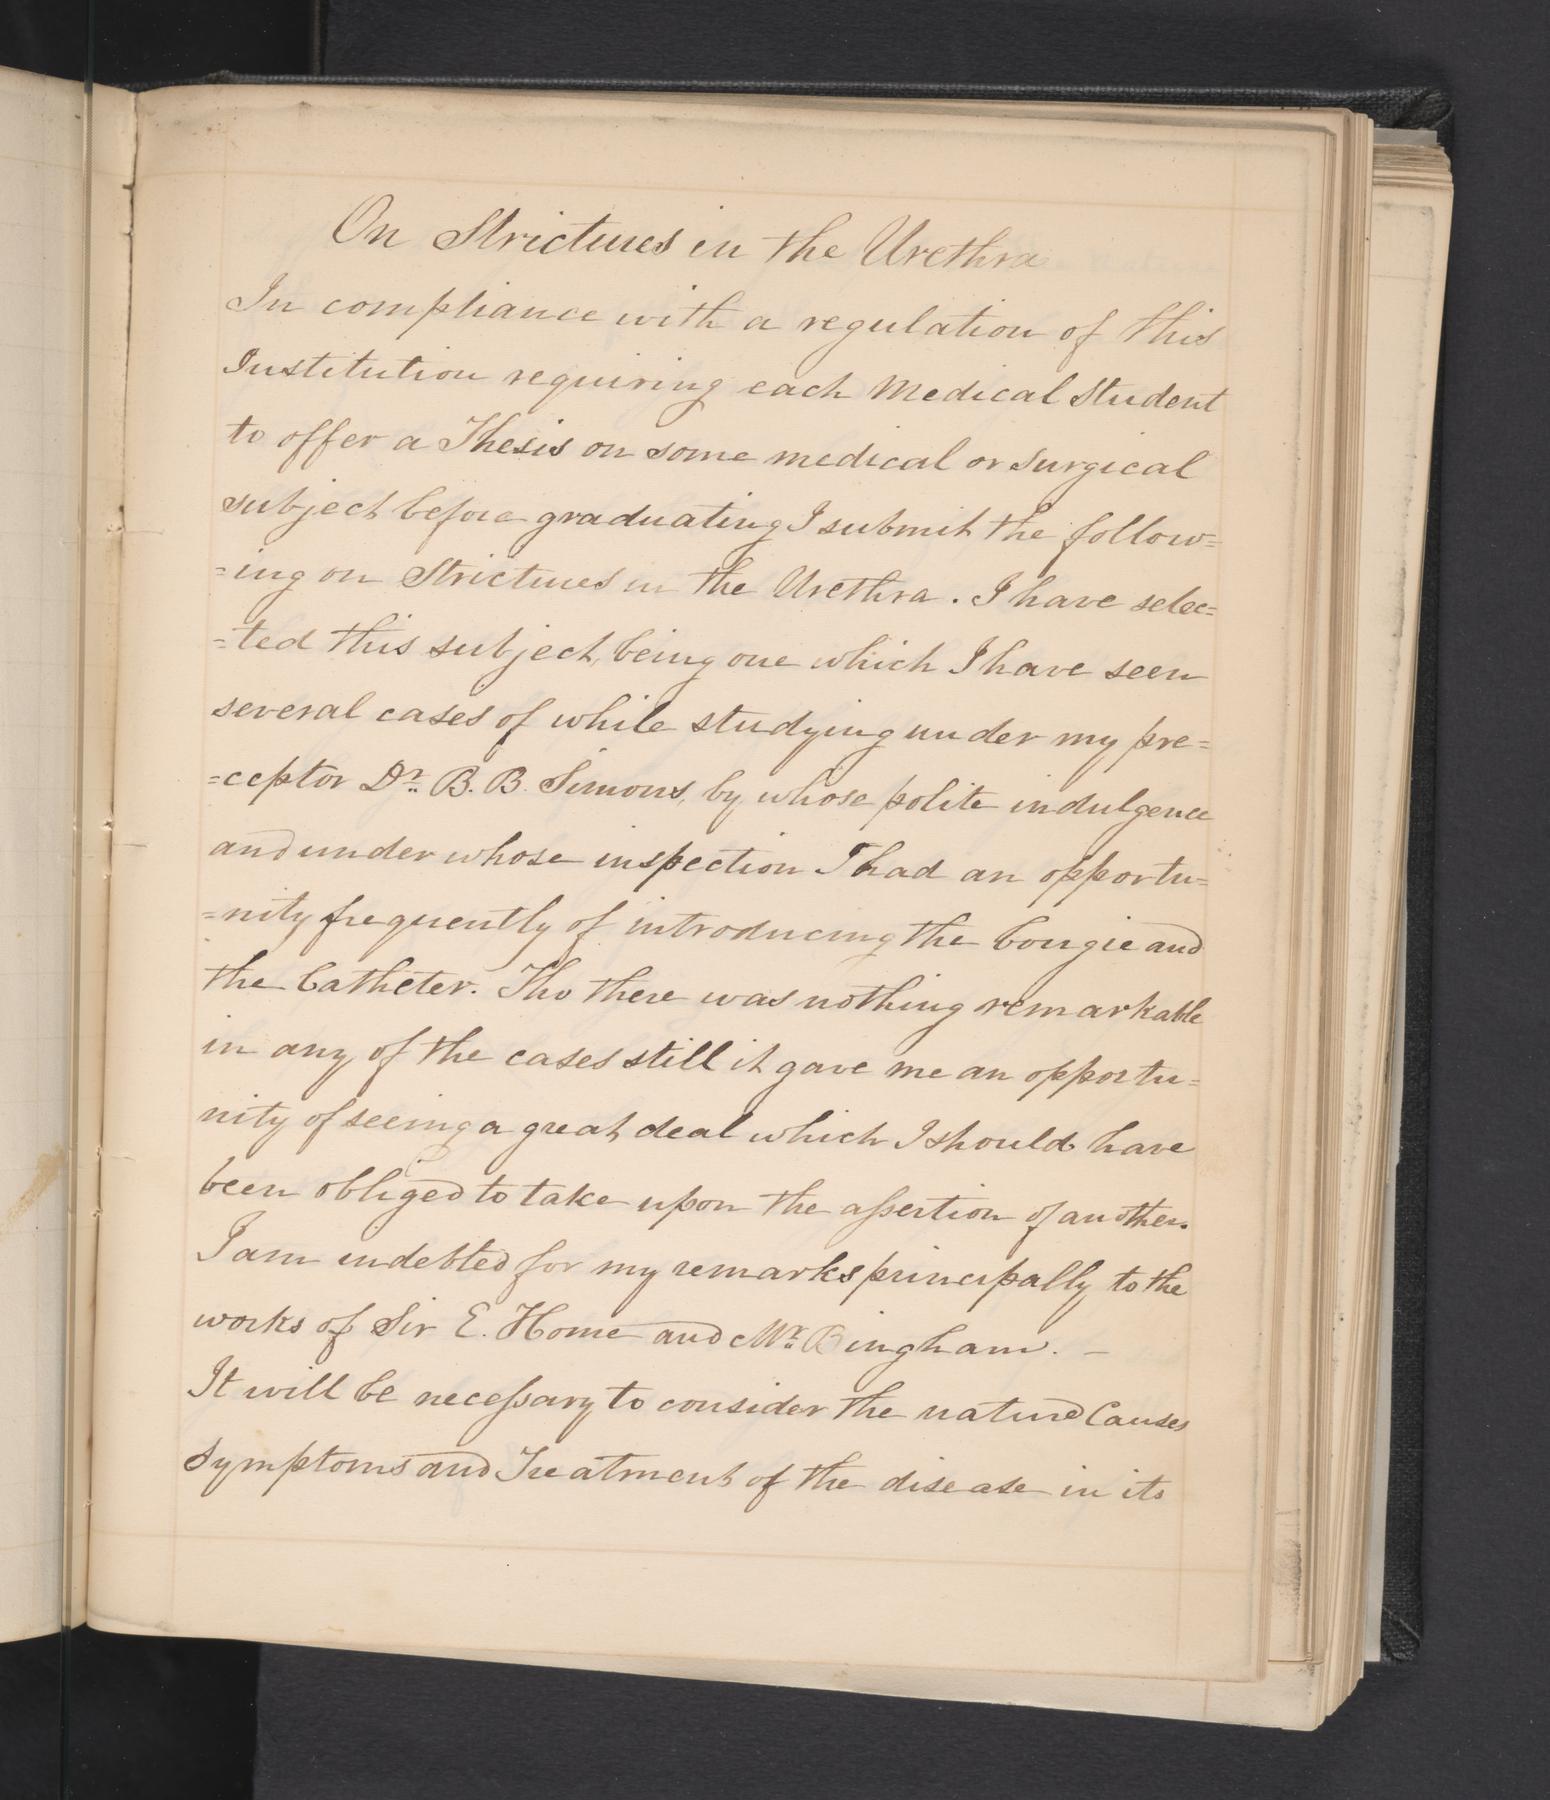 On Strictures in the Urethra
In compliance with a regulation of this
Institution requiring each Medical Student
to offer a Thesis on some medical or surgical
subject before graduating I submit the follow=
=ing on Strictures in the Urethra. I have selec=
=ted this subject, being one which I have seen
several cases of while studying under my pre=
=ceptor Dr. B. B. Simons, by whose polite indulgence
and under whose inspection I had an opportu=
=nity frequently of introducing the bougie and
the Catheter. Tho there was nothing remarkable
in any of the cases still it gave me an opportu=
nity of seeing a great deal which I should have
been obliged to take upon the assertion of another.
I am indebted for my remarks principally to the
works of Sir E. Home and Mr. Bingham. –
It will be necessary to consider the nature Causes
Symptoms and Treatment of the disease in its